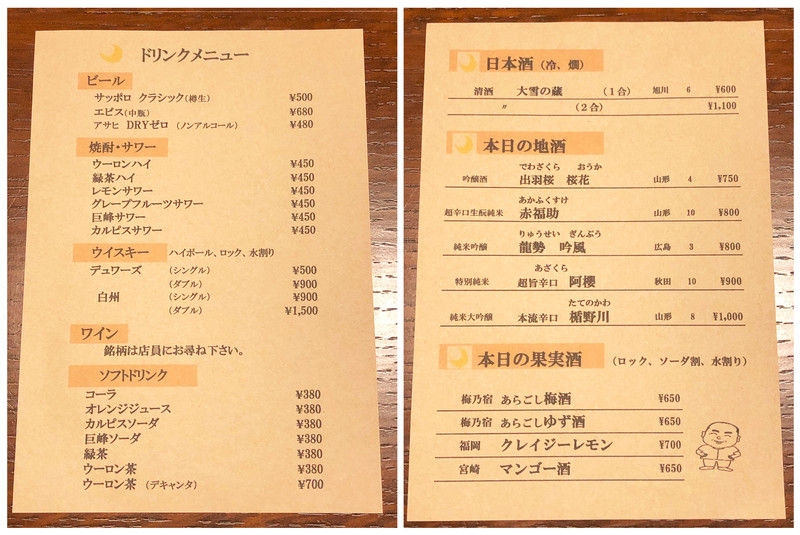 ドリンクメニュー
ビール
サッポロ クラシック（樽生） ¥500
エビス（中瓶） ¥680
アサヒ DRYゼロ （ノンアルコール） ¥480
焼酎・サワー
ウーロンハイ ¥450
緑茶ハイ ¥450
レモンサワー ¥450
グレープフルーツサワー ¥450
巨峰サワー ¥450
カルピスサワー ¥450
ウイスキー ハイボール、ロック、水割り
デュワーズ （シングル） ¥500
（ダブル） ¥900
白州 （シングル） ¥900
（ダブル） ¥1,500
ワイン
銘柄は店員にお尋ね下さい。
ソフトドリンク
コーラ ¥380
オレンジジュース ¥380
カルピスソーダ ¥380
巨峰ソーダ ¥380
緑茶 ¥380
ウーロン茶 ¥380
ウーロン茶 （デキャンタ） ¥700
日本酒（冷、燗）
清酒 大雪の蔵 （1合） 旭川 6 ¥600
〃 （2合） ¥1,100
本日の地酒
でわざくら おうか
吟醸酒 出羽桜 桜花 山形 4 ¥750
あかふくすけ
超辛口生酛純米 赤福助 山形 10 ¥800
りゅうせい ぎんぷう
純米吟醸 龍勢 吟風 広島 3 ¥800
あざくら
特別純米 超旨辛口 阿櫻 秋田 10 ¥900
たてのかわ
純米大吟醸 本流辛口 楯野川 山形 8 ¥1,000
本日の果実酒 （ロック、ソーダ割、水割り）
梅乃宿 あらごし梅酒 ¥650
梅乃宿 あらごしゆず酒 ¥650
福岡 クレイジーレモン ¥700
宮崎 マンゴー酒 ¥650